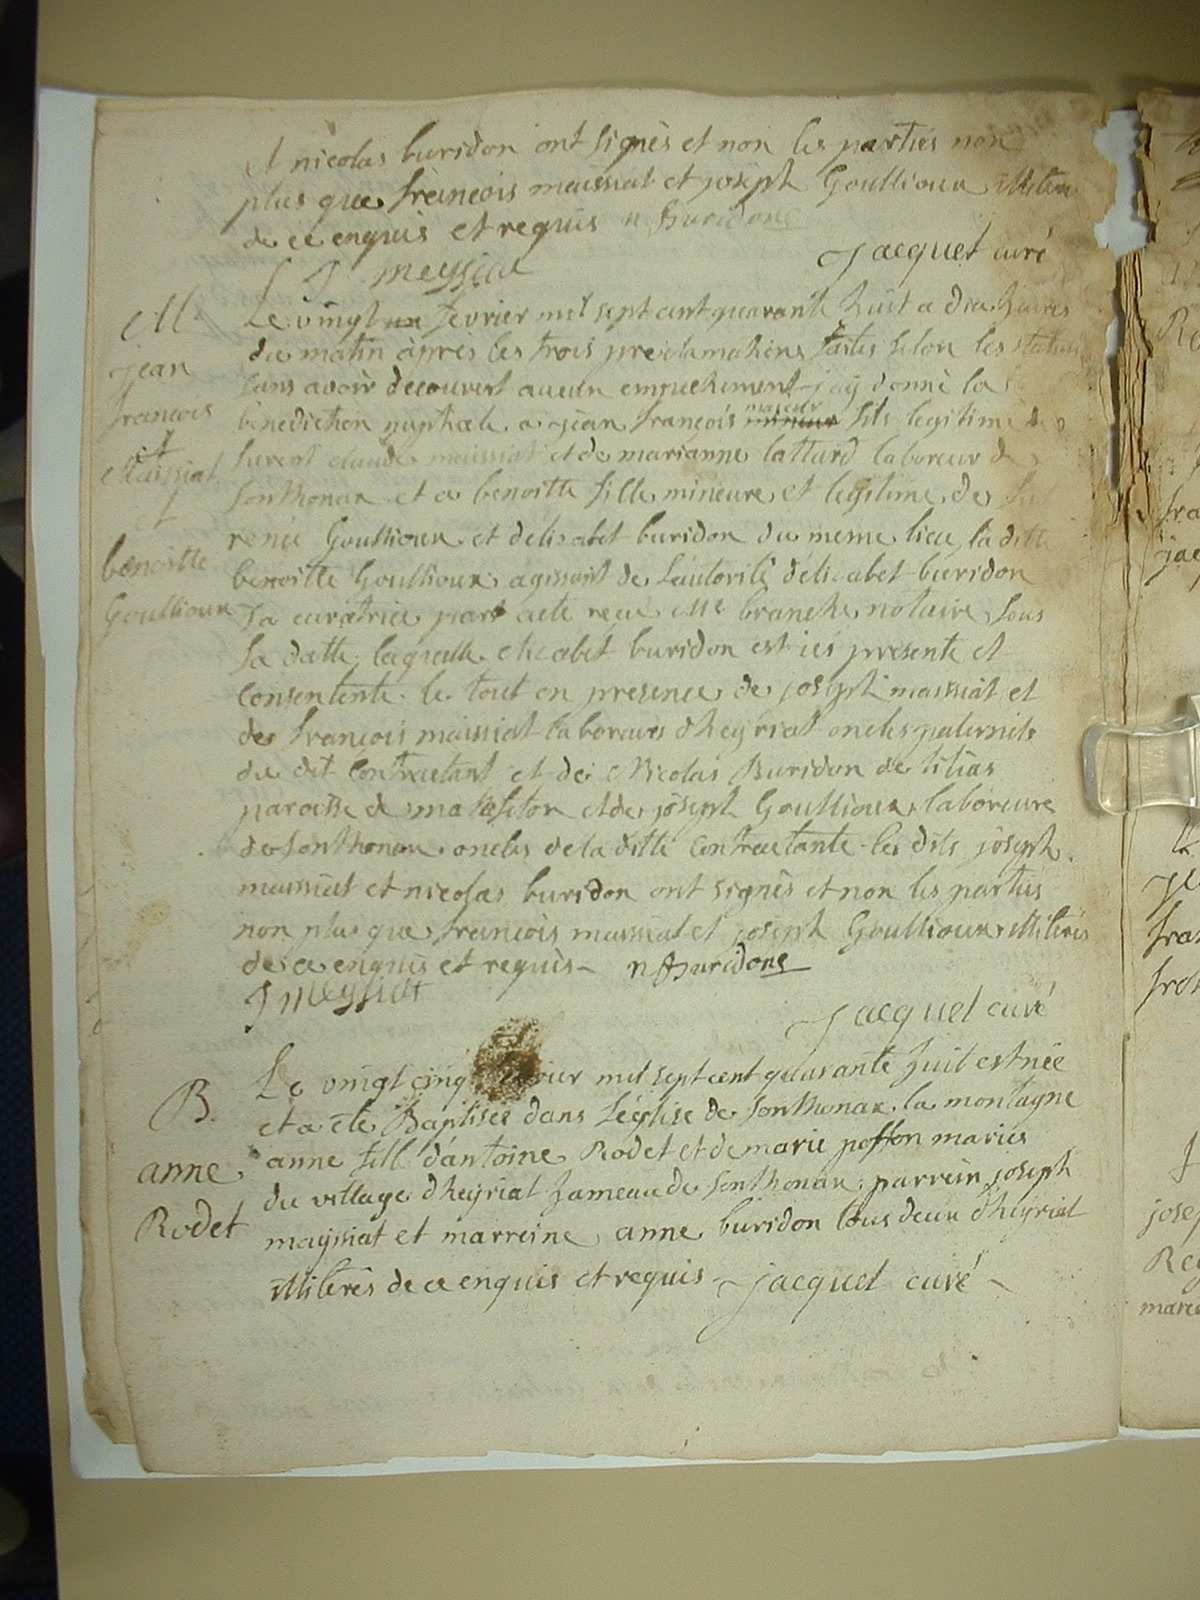 et nicolas buridon ont signés et non les parties non
plus que françois maissiat et joseph Goullioux illiteres
de ce enquis et requis n Buridone
J Meyssiat Jacquet curé
M.
jean
françois
Maissiat
et
benoitte
Goullioux
Le vingt fevrier mil sept cent quarante huit a dix heures
du matin apres les trois proclamations faites selon les statuts
sans avoir decouvert aucun empechement jay donné la
benediction nuptiale a jean françois majeur fils legitime de
furent claude maissiat et de marianne lattard laboreur de
sonthonax et a benoitte fille mineure et legitime de
renée Goullioux et delizabet buridon du meme lieu la ditte
benoitte Goullioux agissant de l'autorité d'elizabet buridon
sa curatrice part acte recu Me branche notaire sous
sa datte laquelle elizabet buridon est ici presente et
consentente le tout en presence de joseph maissiat et
de françois maissiat laboreurs d'heyriat oncles paternels
du dit contractant et de Nicolas Buridon de
paroisse de et de joseph Goullioux laboreure
de sonthonax oncles de la ditte contractante les dits joseph
maissiat et nicolas buridon ont signés et non les parties
non plus que françois maissiat et joseph Goullioux illiterés
de ce enquis et requis n Buridone
J Meyssiat
Jacquet curé
B.
anne
Rodet
Le vingt cinq fevrier mil sept cent quarante huit est née
et a été Baptisée dans l'église de sonthonax la montagne
anne fille d'antoine Rodet et de marie poffon mariés
du village d'heyriat hameau de sonthonax parrein joseph
mayssiat et marreine anne buridon tous deux d'heyriat
illiterés de ce enquis et requis Jacquet curé